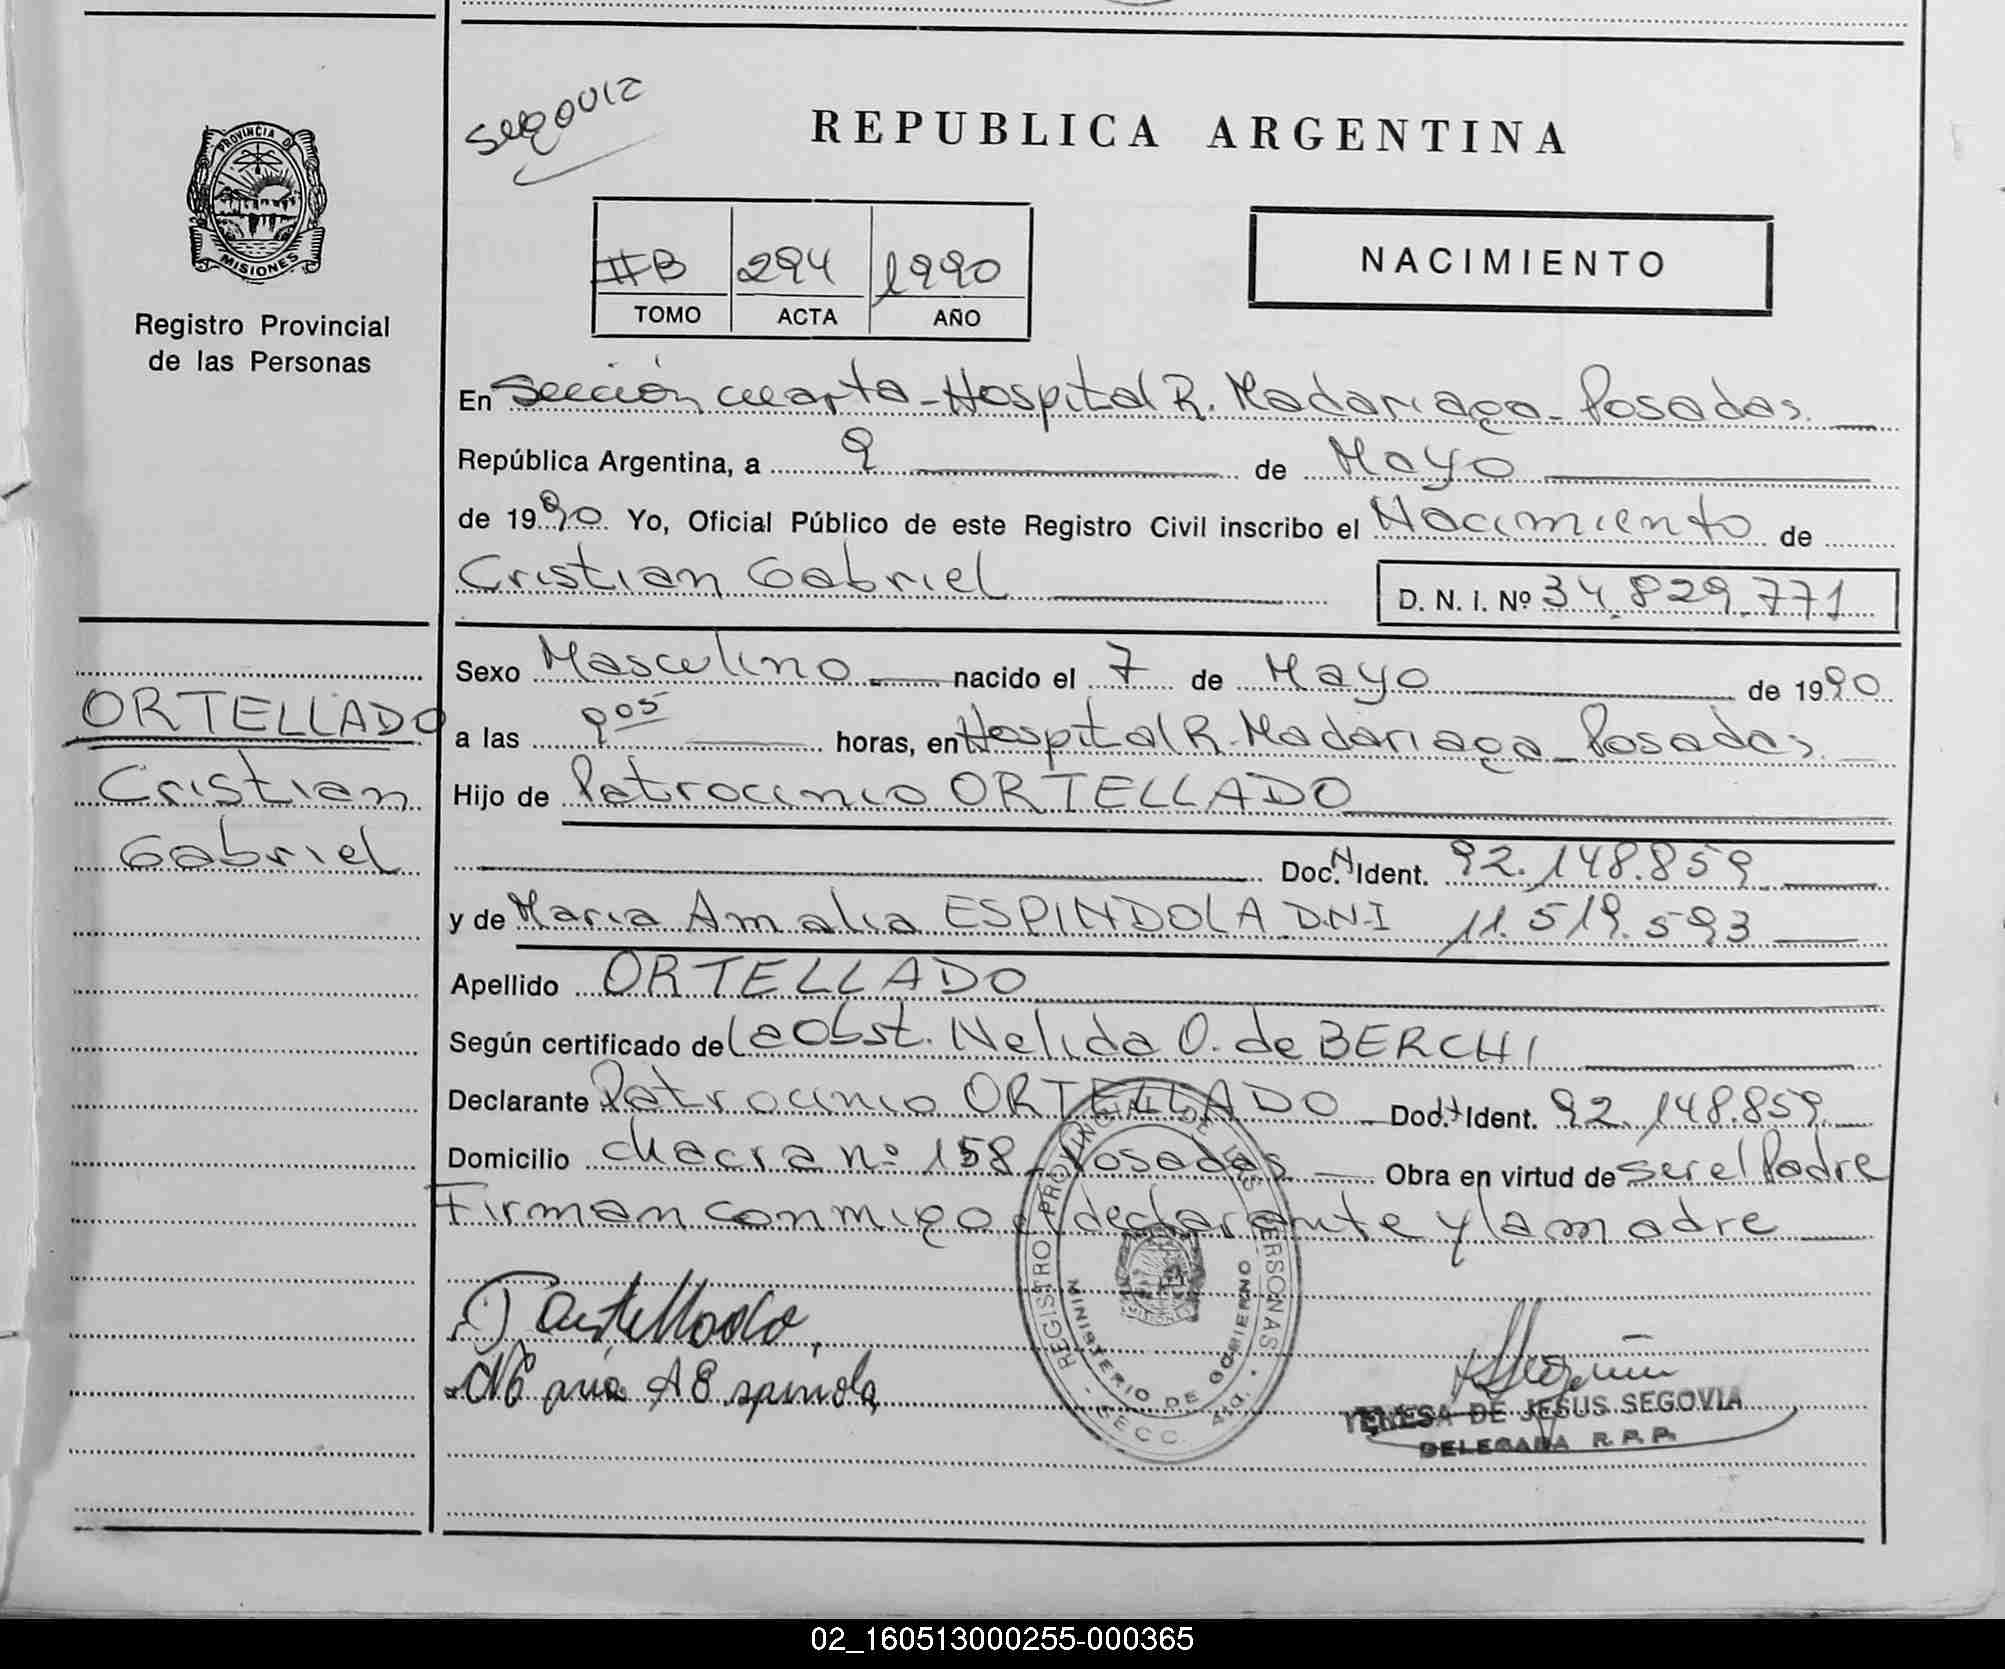 REPUBLICA ARGENTINA
PROVINCIA DE
MISIONES
Registro Provincial
de las Personas
IIB 294 1990
TOMO ACTA AÑO
NACIMIENTO
En Sección cuarta - Hospital R. Madariaga - Posadas.
República Argentina, a 9 de Mayo
de 1990 Yo, Oficial Público de este Registro Civil inscribo el Nacimiento de
Cristian Gabriel
D. N. I. Nº 34.829.771
ORTELLADO
Cristian
Gabriel
Sexo Masculino nacido el 7 de Mayo de 1990
a las 9 05 horas, en Hospital R. Madariaga - Posadas.
Hijo de Patrocinio ORTELLADO
Doc. N Ident. 92.148.859
y de Maria Amalia ESPINDOLA D.N.I 11.519.593
Apellido ORTELLADO
Según certificado de la Obst. Nelida O. de BERCHI
Declarante Patrocinio ORTELLADO Doc. Ident. 92.148.859
Domicilio chacra nº 158 - Posadas Obra en virtud de ser el Padre
Firman conmigo el declarante y la madre
REGISTRO PROVINCIAL DE LAS PERSONAS
MINISTERIO DE GOBIERNO
SECC. 4ta.
TERESA DE JESUS SEGOVIA
DELEGADA R. P. P.
02_160513000255-000365